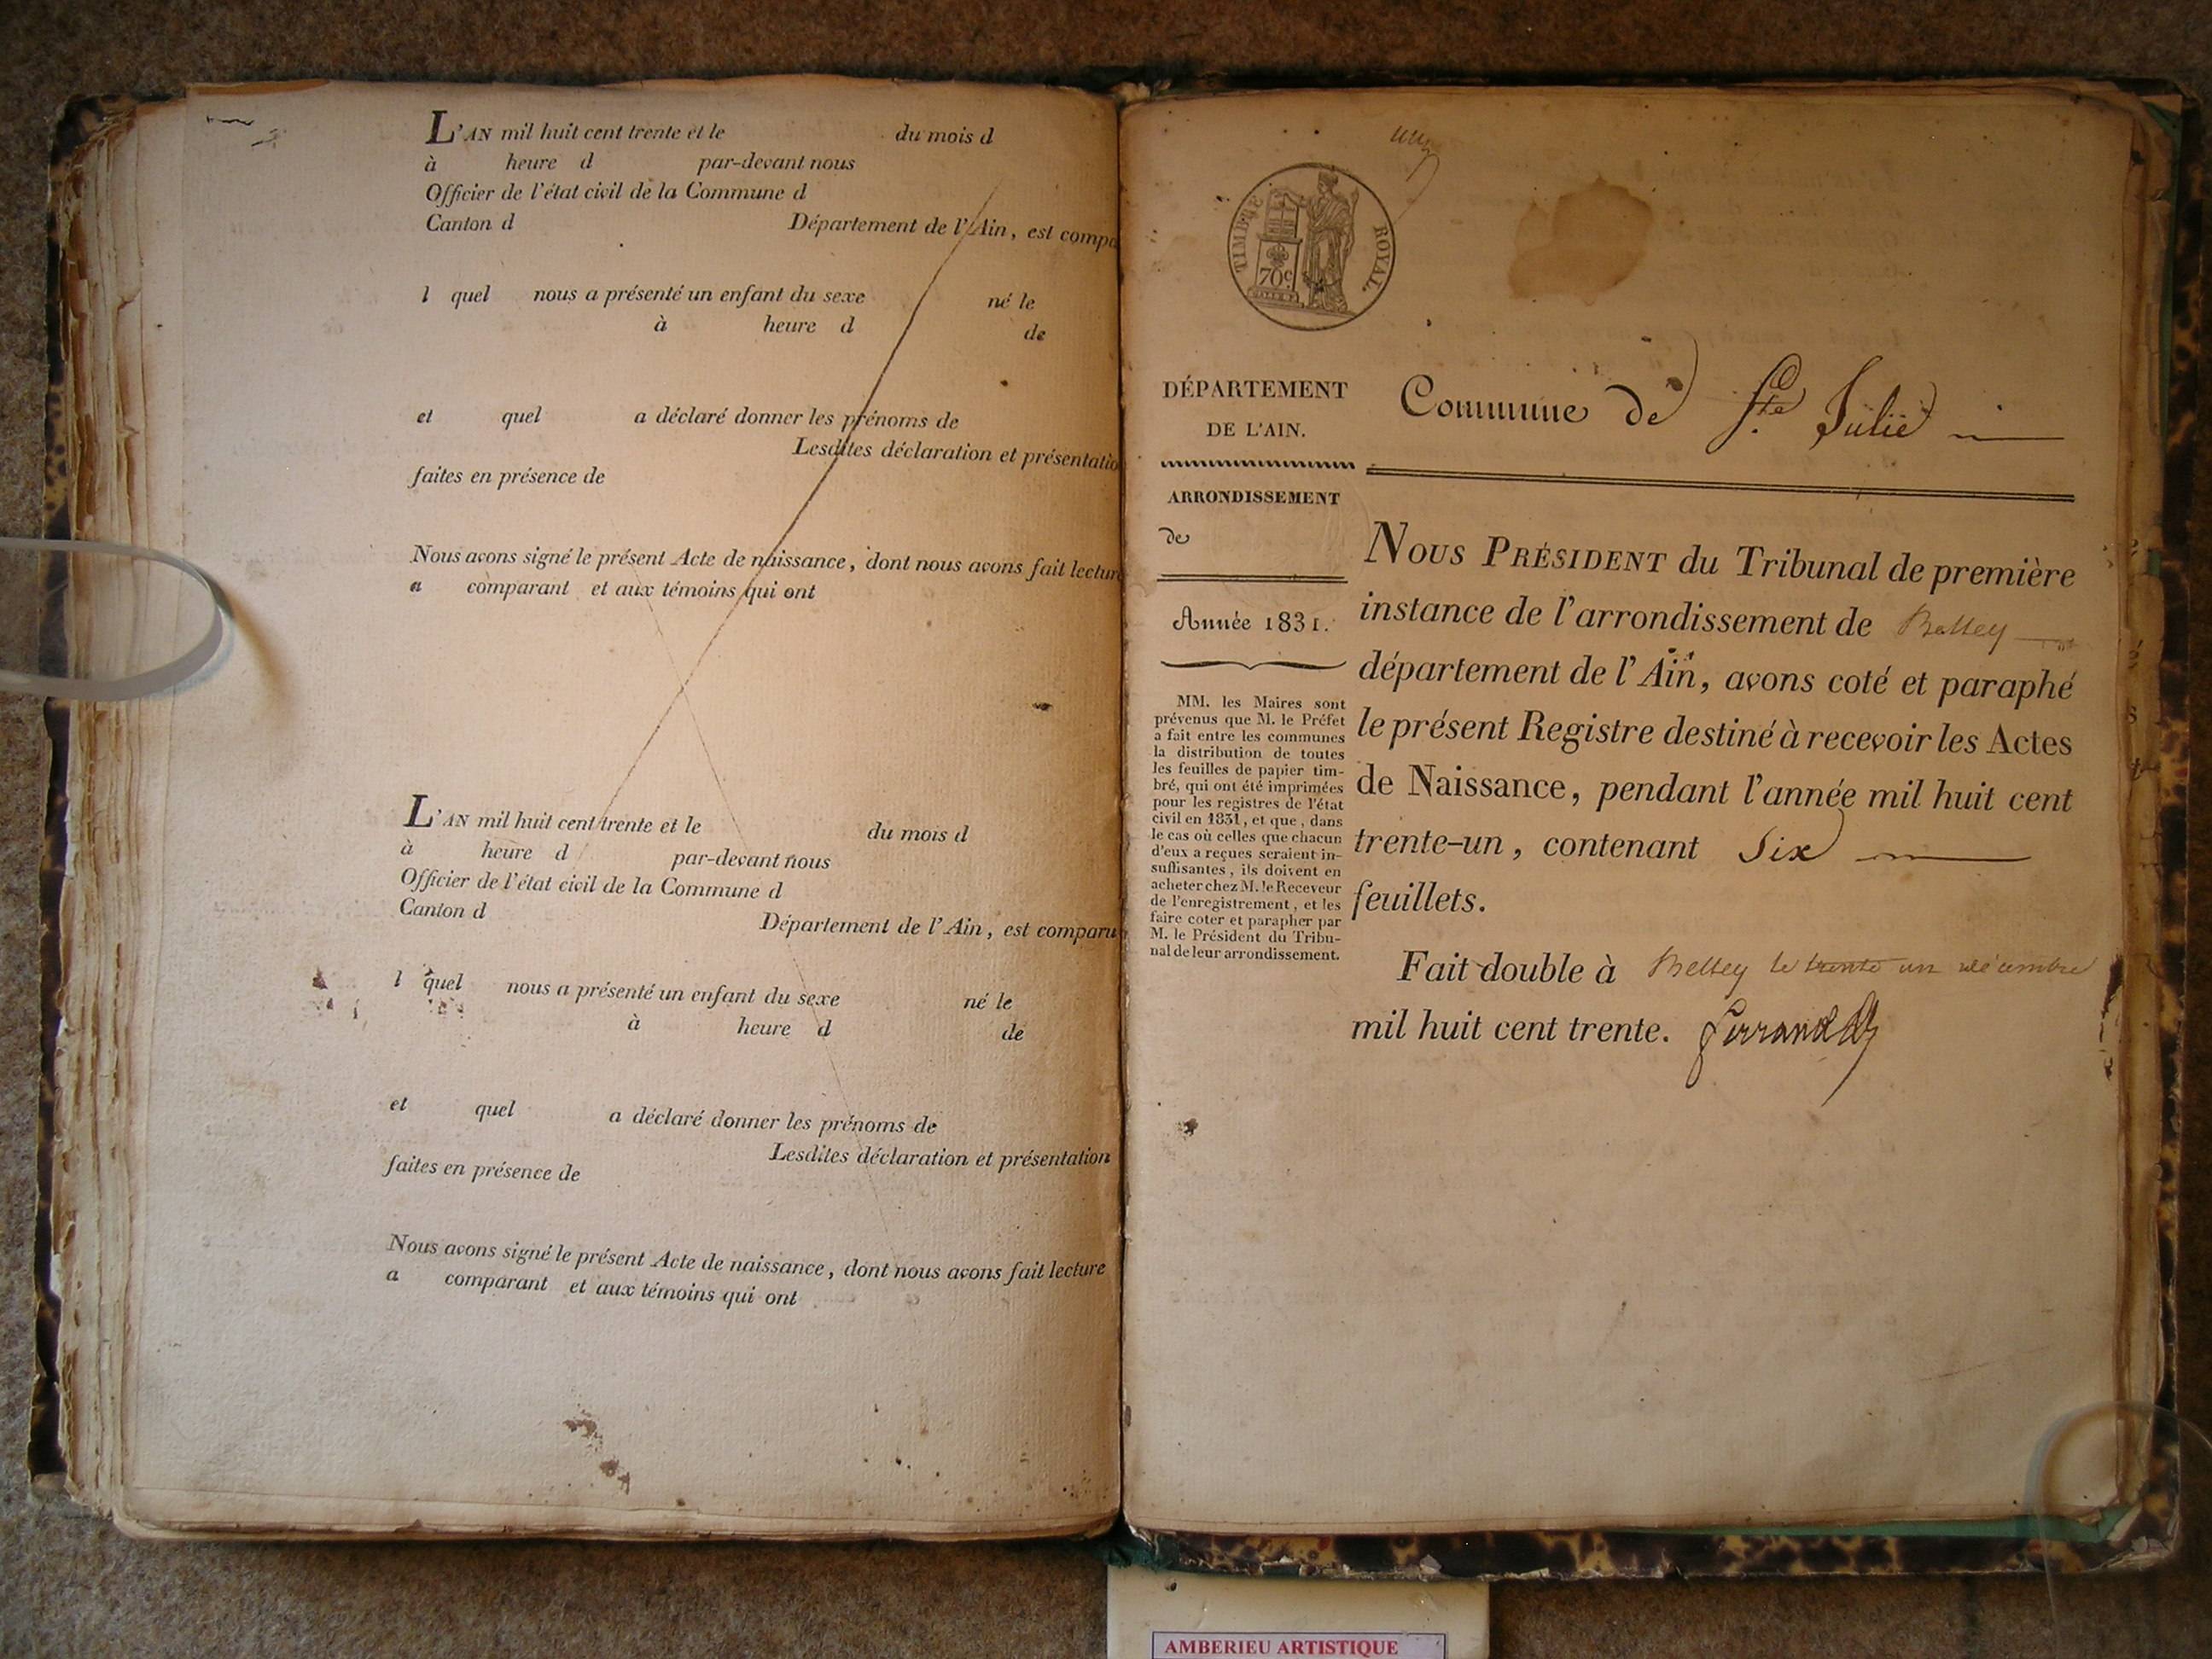 L'AN mil huit cent trente et le du mois d
à heure d par-devant nous
Officier de l'état civil de la Commune d
Canton d Département de l'Ain, est compa
l quel nous a présenté un enfant du sexe né le
à heure d de
et quel a déclaré donner les prénoms de
Lesdites déclaration et présentatio
faites en présence de
Nous avons signé le présent Acte de naissance, dont nous avons fait lecture
a comparant et aux témoins qui ont
L'AN mil huit cent trente et le du mois d
à heure d par-devant nous
Officier de l'état civil de la Commune d
Canton d Département de l'Ain, est comparu
l quel nous a présenté un enfant du sexe né le
à heure d de
et quel a déclaré donner les prénoms de
Lesdites déclaration et présentation
faites en présence de
Nous avons signé le présent Acte de naissance, dont nous avons fait lecture
a comparant et aux témoins qui ont
TIMBRE ROYAL
70c
DÉPARTEMENT
DE L'AIN.
ARRONDISSEMENT
de
Année 1831.
MM. les Maires sont
prévenus que M. le Préfet
a fait entre les communes
la distribution de toutes
les feuilles de papier tim-
bré, qui ont été imprimées
pour les registres de l'état
civil en 1831, et que, dans
le cas où celles que chacun
d'eux a reçues seraient in-
suffisantes, ils doivent en
acheter chez M. le Receveur
de l'enregistrement, et les
faire coter et parapher par
M. le Président du Tribu-
nal de leur arrondissement.
Commune de Ste Julie
NOUS PRÉSIDENT du Tribunal de première
instance de l'arrondissement de Belley
département de l'Ain, avons coté et paraphé
le présent Registre destiné à recevoir les Actes
de Naissance, pendant l'année mil huit cent
trente-un, contenant Six
feuillets.
Fait double à Belley le trente un décembre
mil huit cent trente. Ferrand
AMBERIEU ARTISTIQUE